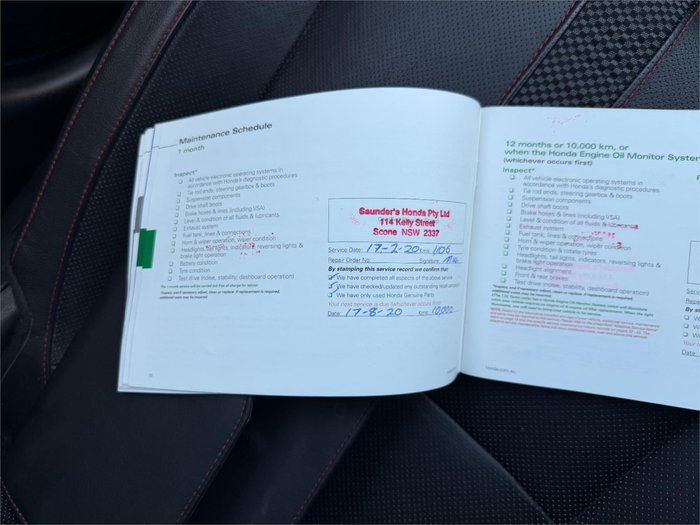 Maintenance Schedule
1 month
Inspect*
All vehicle electronic operating systems in
accordance with Honda's diagnostic procedures
Tie rod ends, steering gearbox & boots
Suspension components
Drive shaft boots
Brake hoses & lines (including VSA)
Level & condition of all fluids & lubricants
Exhaust system
Fuel tank, lines & connections
Horn & wiper operation, wiper condition
Headlights, tail lights, indicators, reversing lights &
brake light operation
Battery condition
Tyre condition
Test drive (noise, stability, dashboard operation)
*Inspect and if necessary adjust, clean or replace. If replacement is required,
additional costs may be incurred.
Saunder's Honda Pty Ltd
114 Kelly Street
Scone NSW 2337
Service Date: 17-2-20 Kms 1105
Repair Order No: Signature
By stamping this service record we confirm that:
We have completed all aspects of the above service
We have checked/updated any outstanding recall
We have only used Honda Genuine Parts
Your next service is due (whichever occurs first)
Date: 17-8-20 Kms 10,000
12 months or 10,000 km, or
when the Honda Engine Oil Monitor System
(whichever occurs first)
Inspect*
All vehicle electronic operating systems in
accordance with Honda's diagnostic procedures
Tie rod ends, steering gearbox & boots
Suspension components
Drive shaft boots
Brake hoses & lines (including VSA)
Level & condition of all fluids & lubricants
Exhaust system
Fuel tank, lines & connections
Horn & wiper operation, wiper condition
Tyre condition & rotate tyres
Headlights, tail lights, indicators, reversing lights &
brake light operation
Headlight alignment
Front & rear brakes
Test drive (noise, stability, dashboard operation)
*Inspect and if necessary adjust, clean or replace. If replacement is required,
additional costs may be incurred.
honda.com.au
Date